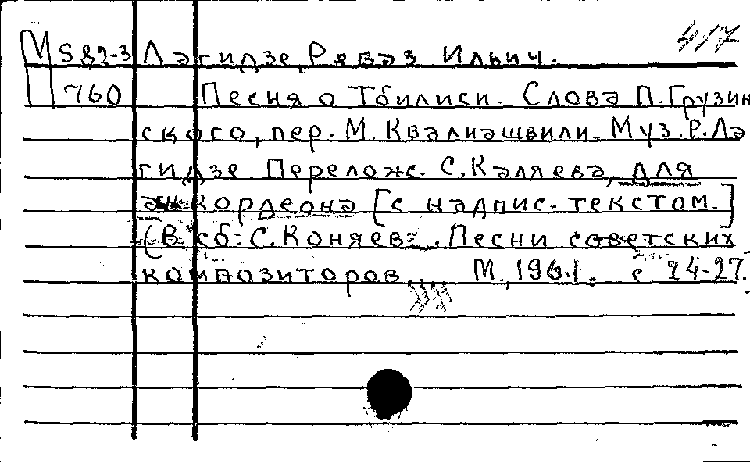 М S 82-3 Лагидзе, Реваз Ильич. 417
П 760 Песня о Тбилиси. Слова П. Грузин
ского, пер. М. Квалиашвили. Муз. Р. Ла
гидзе. Перелож. С. Каляева, для
аккордеона [с надпис. текстом.]
(В сб: С. Коняев. Песни советских
композиторов... М, 1961. с 24-27.